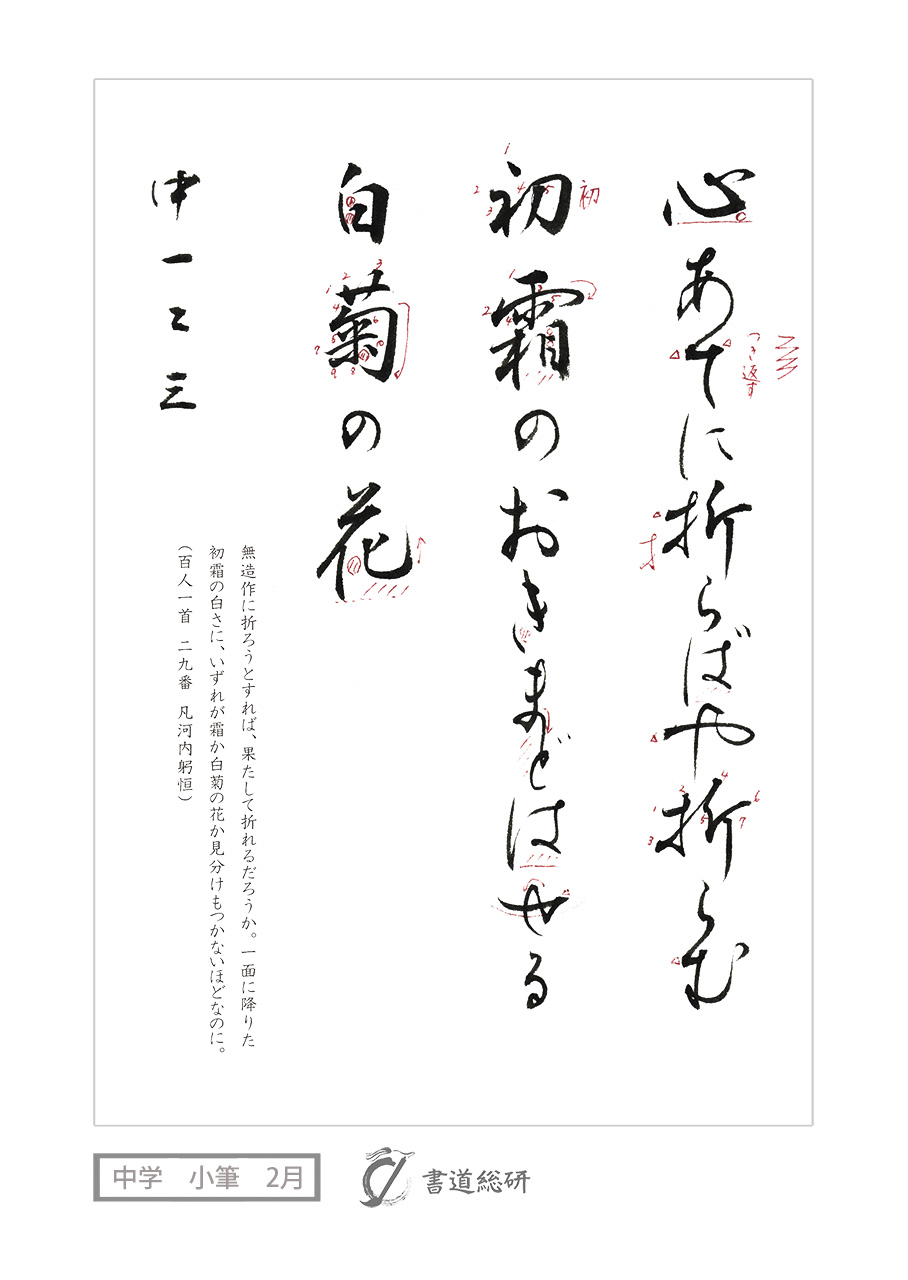 心あてに折らばや折らむ
初霜のおきまどはせる
白菊の花
中一二三
つき返す
初
無造作に折ろうとすれば、果たして折れるだろうか。一面に降りた
初霜の白さに、いずれが霜か白菊の花か見分けもつかないほどなのに。
(百人一首 二九番 凡河内躬恒)
中学 小筆 2月
書道総研